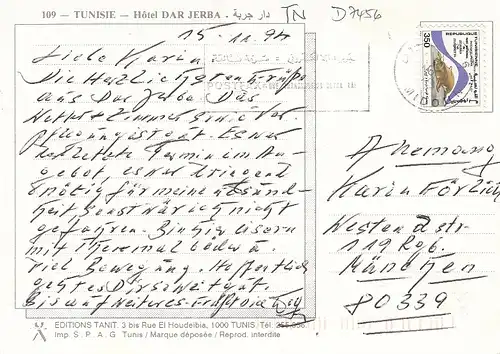 109 — TUNISIE — Hôtel DAR JERBA - دار جربة
TN
D7456
15.11.94
Liebe Karin
Die herzlichsten Grüße
aus Dar Jerba. Das
Wetter + Zimmer sind
Verpflegung ist gut. Es war
der letzte Termin im An-
gebot, es war dringend
nötig für meine Gesund-
heit sonst wär ich nicht
gefahren.
mit Thermalbädern
viel Bewegung. Hoffentlich
geht es Dir soweit gut.
Bis auf Weiteres
REPUBLIQUE
350
An
Karin
Westendstr
119 Rgb.
München
80339
EDITIONS TANIT. 3 bis Rue El Houdeibia, 1000 TUNIS / Tél.
Imp. S.P.A.G Tunis / Marque déposée / Reprod. interdite